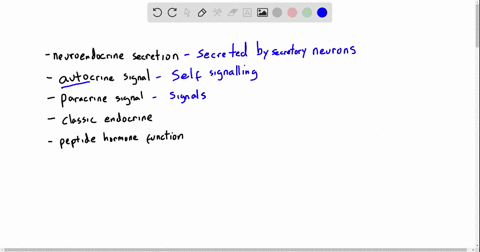 - neuroendocrine secretion - Secreted by secretory neurons
- autocrine signal - Self signalling
- paracrine signal - Signals
- classic endocrine
- peptide hormone function